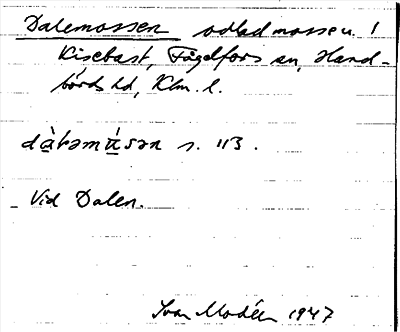 Dalemossen odlad mosse u. !
Kisebast, Fågelfors sn, Hand-
börds hd, Klm. l.
dàɫəmɷ́sən s. 113.
Vid Dalen.
Ivar Modéer 1947